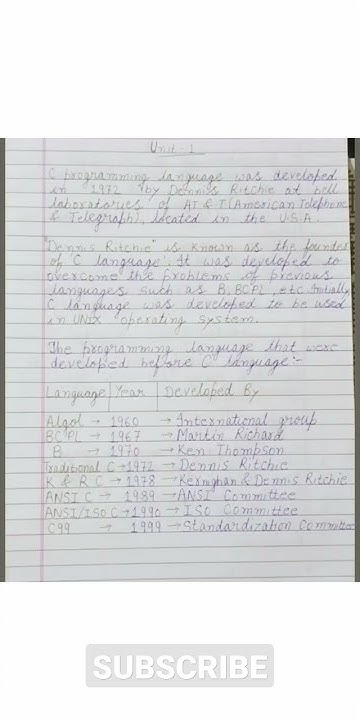 Unit - 1
C programming language was developed
in 1972 by Dennis Ritchie at bell
laboratories of AT & T (American Telephone
& Telegraph), located in the U.S.A.
"Dennis Ritchie" is known as the founder
of C language. It was developed to
overcome the problems of previous
languages such as B, BCPL, etc. Initially
C language was developed to be used
in UNIX operating system.
The programming language that were
developed before C language :-
Language | Year | Developed By
Algol → 1960 → International group
BCPL → 1967 → Martin Richard
B → 1970 → Ken Thompson
Traditional C → 1972 → Dennis Ritchie
K & R C → 1978 → Kernighan & Dennis Ritchie
ANSI C → 1989 → ANSI Committee
ANSI/ISO C → 1990 → ISO Committee
C99 → 1999 → Standardization Committee
SUBSCRIBE